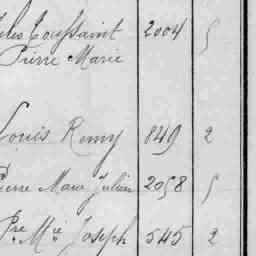 Jules Toussaint 2004 5
Pierre Marie
Louis Remy 849 2
Pierre Marie Julien 2058 5
Pre Mie Joseph 545 2